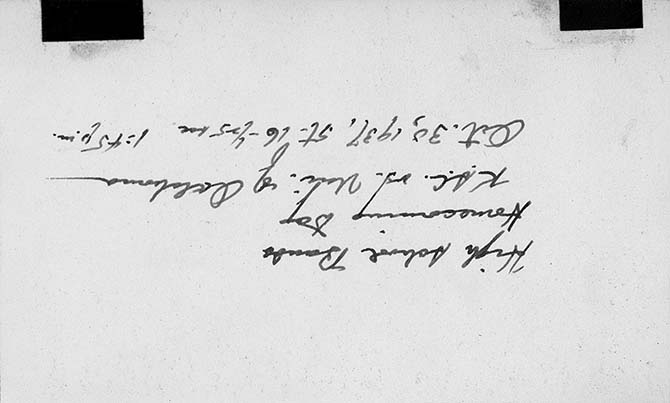 High School Bands
Homecoming Day
K.S.C. vs. Uni. of Oklahoma
Oct. 30, 1937, st. 16 - 1/25 sec 1:45 p.m.